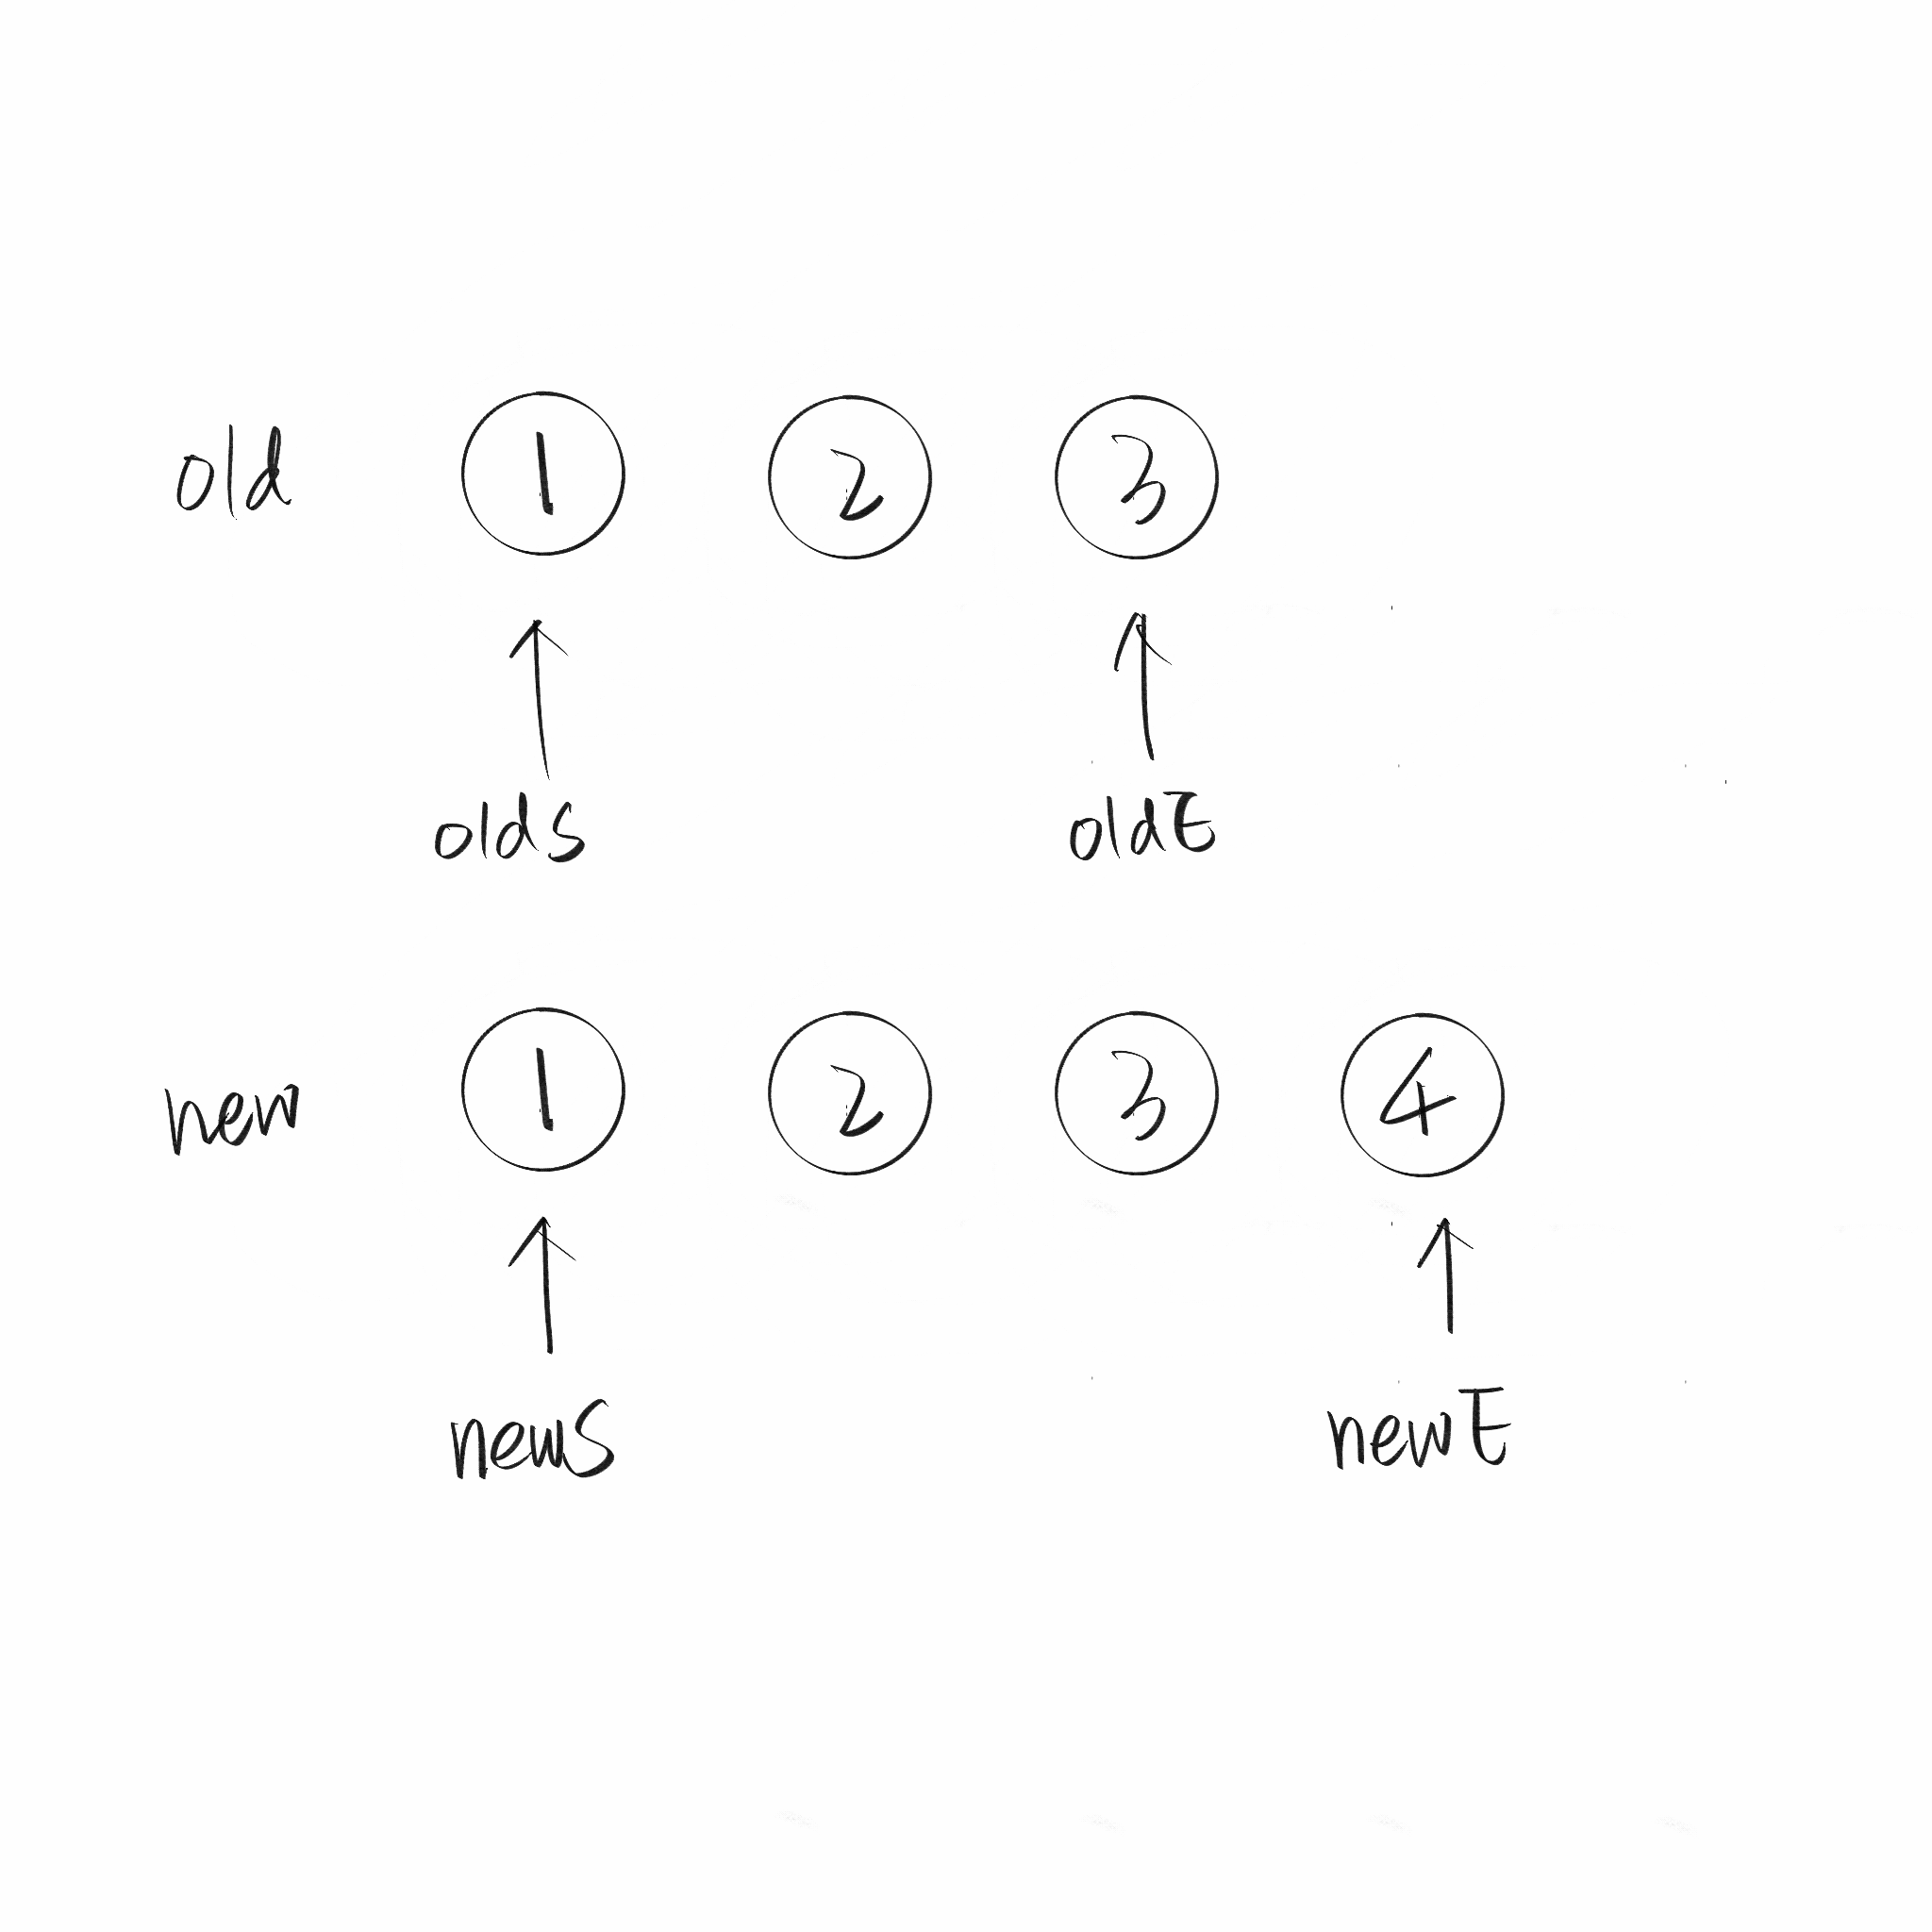 old 1 2 3
oldS oldE
new 1 2 3 4
newS newE